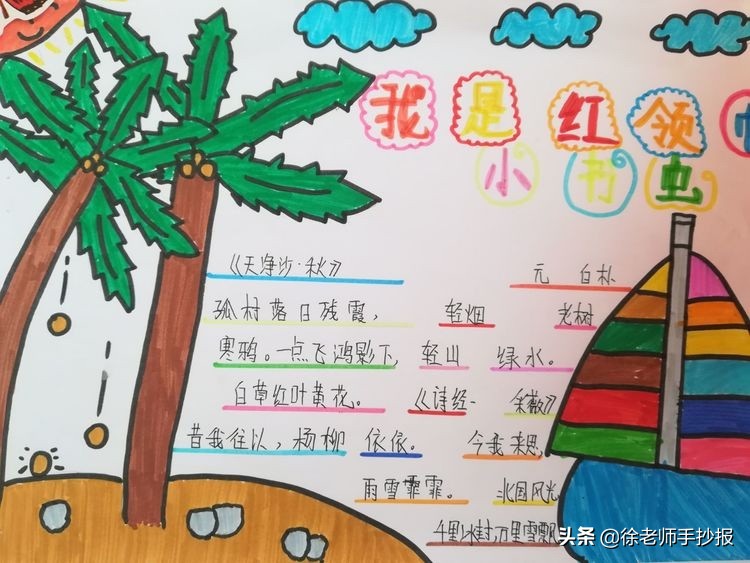 我是红领巾
小书虫
《天净沙·秋》 元 白朴
孤村落日残霞， 轻烟 老树
寒鸦。一点飞鸿影下， 轻山 绿水。
白草红叶黄花。 《诗经- 采薇》
昔我往以，杨柳 依依。 今我来思，
雨雪霏霏。 北国风光
千里冰封,万里雪飘
头条 @徐老师手抄报